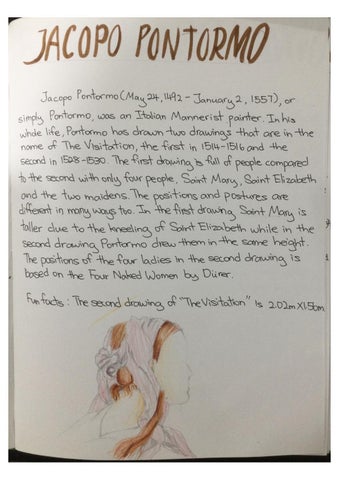 JACOPO PONTORMO
Jacopo Pontormo (May 24, 1492 - January 2, 1557), or
simply Pontormo, was an Italian Mannerist painter. In his
whole life, Pontormo has drawn two drawings that are in the
name of The Visitation, the first in 1514-1516 and the
second in 1528-1530. The first drawing is full of people compared
to the second with only four people, Saint Mary, Saint Elizabeth
and the two maidens. The positions and postures are
different in many ways too. In the first drawing Saint Mary is
taller due to the kneeling of Saint Elizabeth while in the
second drawing Pontormo drew them in the same height.
The positions of the four ladies in the second drawing is
based on the Four Naked Women by Dürer.
Fun facts : The second drawing of "The Visitation" is 2.02m X 1.56m